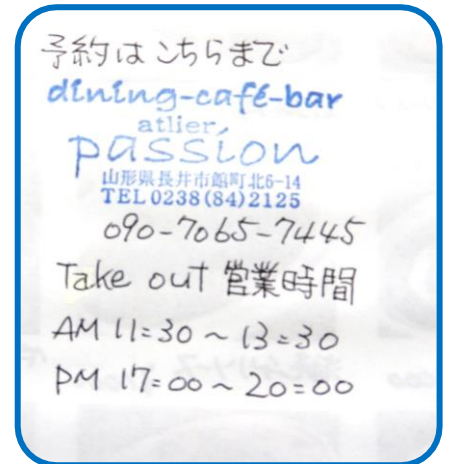 予約はこちらまで
dining-café-bar
atlier
passion
山形県長井市館町北6-14
TEL 0238(84)2125
090-7065-7445
Take out 営業時間
AM 11:30 ~ 13:30
PM 17:00 ~ 20:00